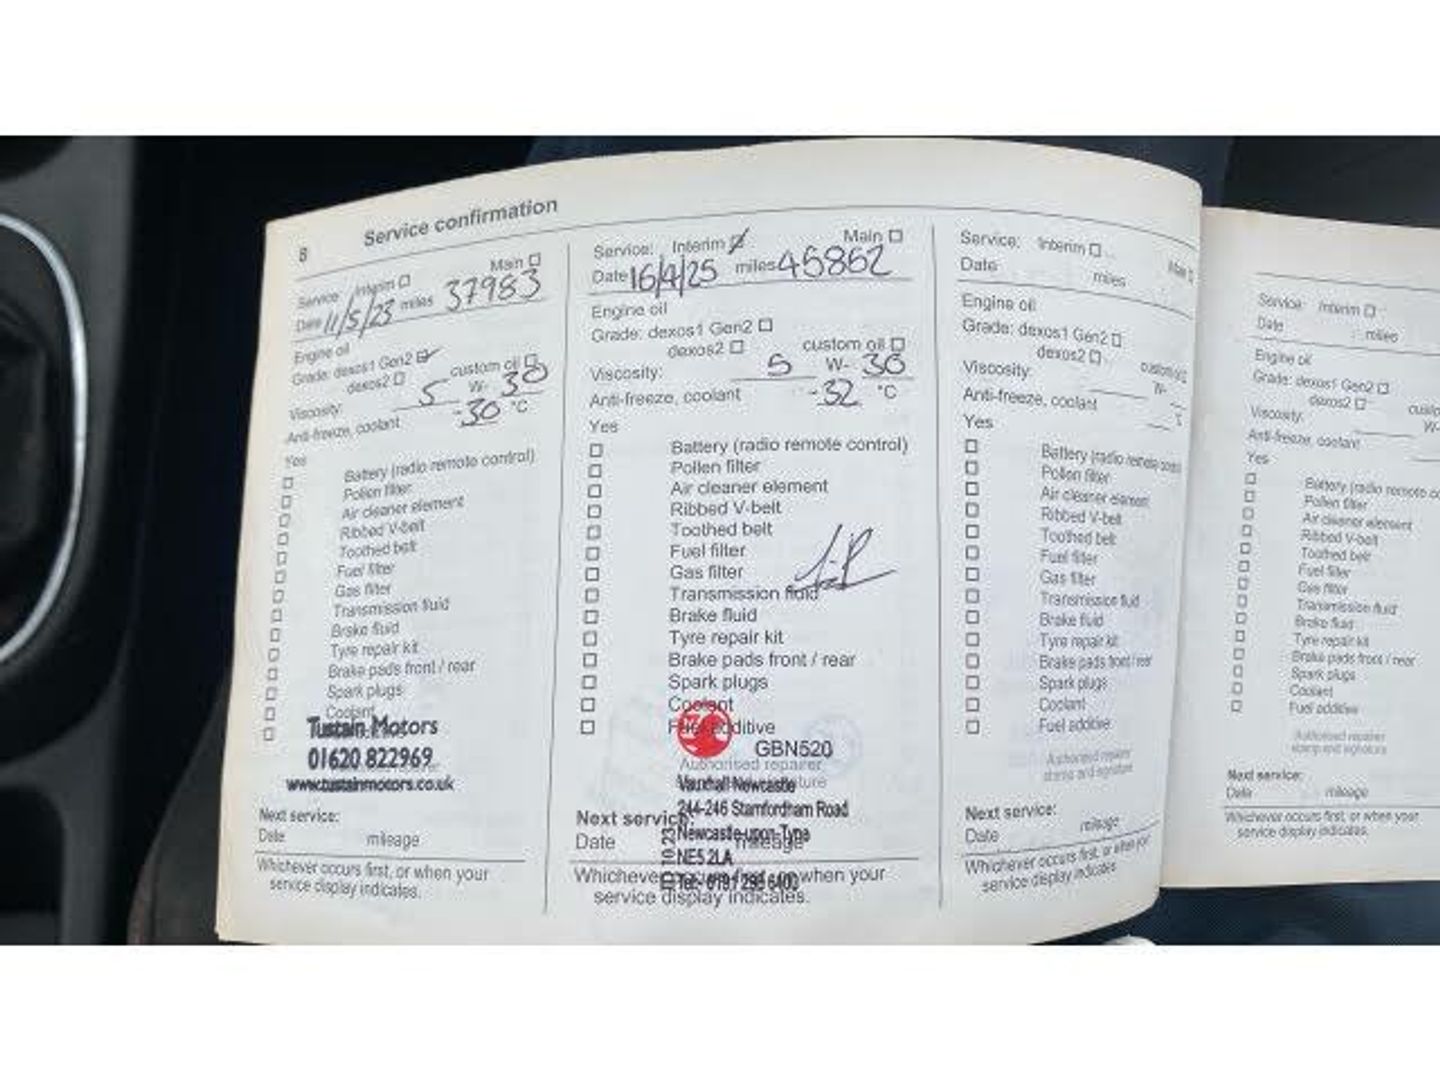 8 Service confirmation
Service: Interim Main
Date 11/5/23 miles 37983
Engine oil
Grade: dexos1 Gen2
dexos2 custom oil
Viscosity: 5 W- 30
Anti-freeze, coolant -30 °C
Yes
Battery (radio remote control)
Pollen filter
Air cleaner element
Ribbed V-belt
Toothed belt
Fuel filter
Gas filter
Transmission fluid
Brake fluid
Tyre repair kit
Brake pads front / rear
Spark plugs
Coolant
Tustain Motors
01620 822969
www.tustainmotors.co.uk
Next service:
Date mileage
Whichever occurs first, or when your
service display indicates.
Service: Interim Main
Date 16/4/25 miles 45862
Engine oil
Grade: dexos1 Gen2
dexos2 custom oil
Viscosity: 5 W- 30
Anti-freeze, coolant -32 °C
Yes
Battery (radio remote control)
Pollen filter
Air cleaner element
Ribbed V-belt
Toothed belt
Fuel filter
Gas filter
Transmission fluid
Brake fluid
Tyre repair kit
Brake pads front / rear
Spark plugs
Coolant
Fuel additive
GBN520
Authorised repairer
signature
Vauxhall Newcastle
244-246 Stamfordham Road
Newcastle-upon-Tyne
NE5 2LA
Next service:
Date mileage
Whichever occurs first, or when your
service display indicates.
Service: Interim Main
Date miles
Engine oil
Grade: dexos1 Gen2
dexos2 custom oil
Viscosity: W-
Anti-freeze, coolant °C
Yes
Battery (radio remote control)
Pollen filter
Air cleaner element
Ribbed V-belt
Toothed belt
Fuel filter
Gas filter
Transmission fluid
Brake fluid
Tyre repair kit
Brake pads front / rear
Spark plugs
Coolant
Fuel additive
Authorised repairer
stamp and signature
Next service:
Date mileage
Whichever occurs first, or when your
service display indicates.
Service: Interim
Date miles
Engine oil
Grade: dexos1 Gen2
dexos2
Viscosity: W-
Anti-freeze, coolant
Yes
Battery (radio remote
Pollen filter
Air cleaner element
Ribbed V-belt
Toothed belt
Fuel filter
Gas filter
Transmission fluid
Brake fluid
Tyre repair kit
Brake pads front / rear
Spark plugs
Coolant
Fuel additive
Authorised repairer
stamp and signature
Next service:
Date mileage
Whichever occurs first, or when your
service display indicates.